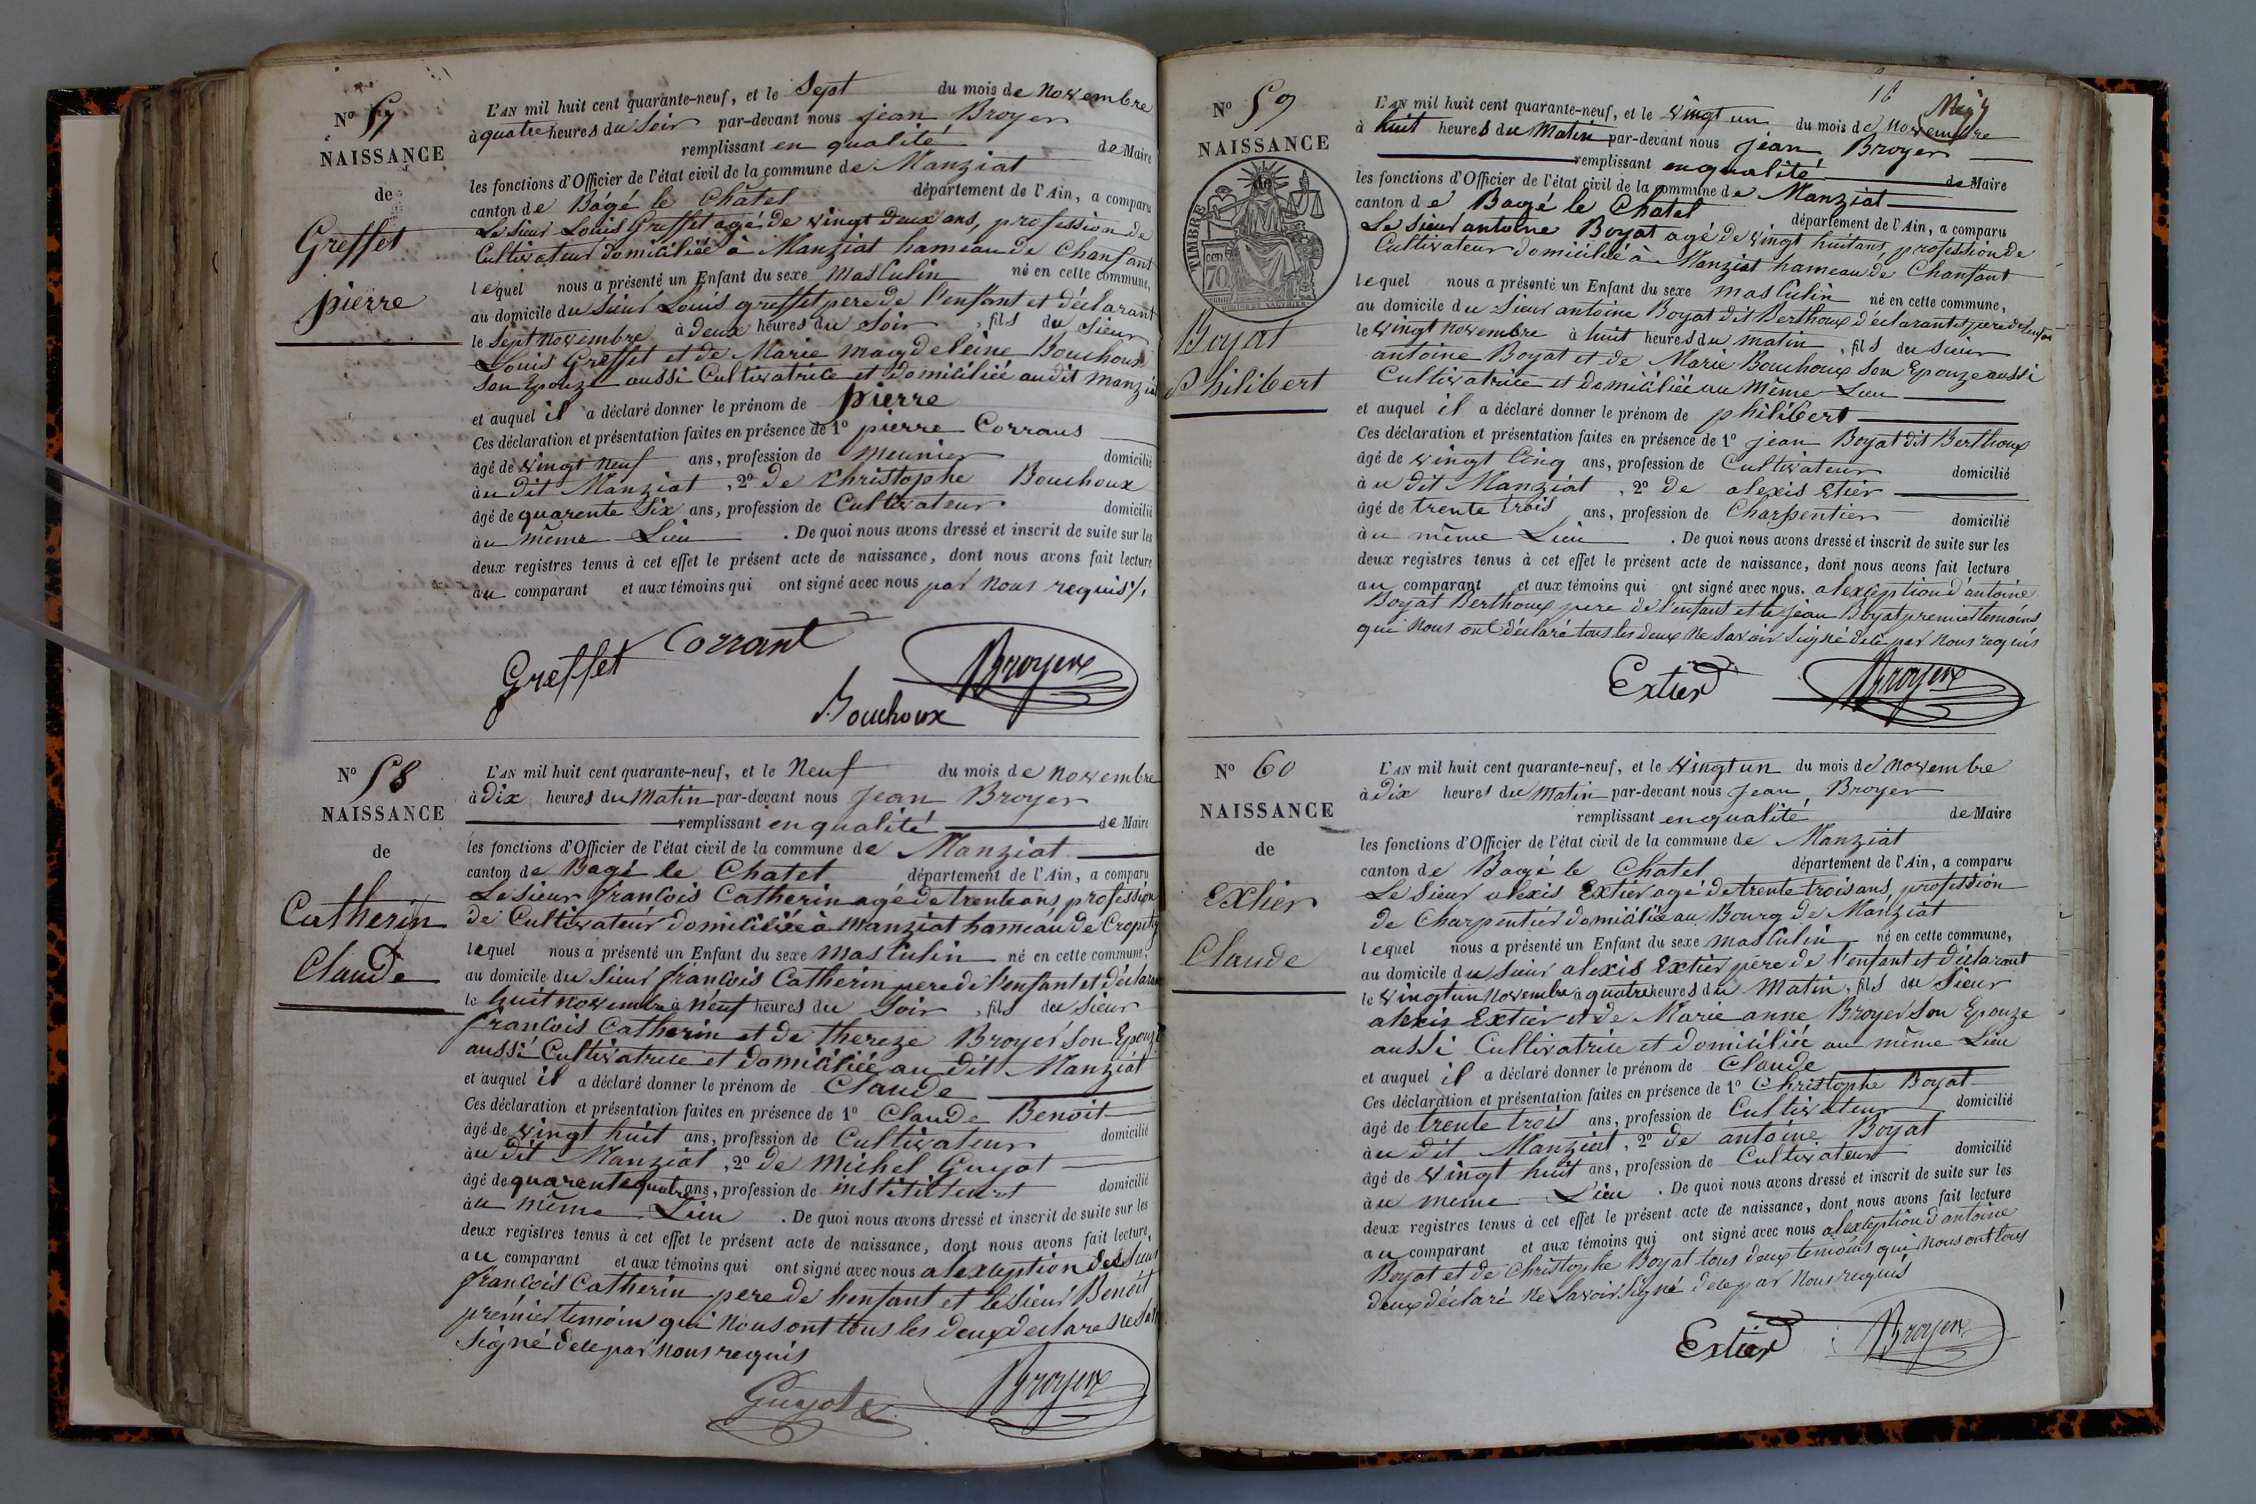 Nº 57
NAISSANCE
de
Greffet
pierre
L'AN mil huit cent quarante-neuf, et le Sept du mois de Novembre
à quatre heures du Soir par-devant nous jean Broyer
remplissant en qualité de Maire
les fonctions d'Officier de l'état civil de la commune de Manziat
canton de Bâgé le Châtel département de l'Ain, a comparu
Le Sieur Louis Greffet agé de vingt Deux ans, profession de
Cultivateur domiciliée à Manziat hameau de Chanfant
lequel nous a présenté un Enfant du sexe Masculin né en cette commune,
au domicile du Sieur Louis greffet pere de l'enfant et déclarant
le Sept Novembre à deux heures du Soir, fils du Sieur
Louis Greffet et de Marie magdeleine Bouchoux
Son Epouze aussi Cultivatrice et domiciliée audit Manziat
et auquel il a déclaré donner le prénom de pierre
Ces déclaration et présentation faites en présence de 1º pierre Corraus
âgé de vingt Neuf ans, profession de Meunier domicilié
à u dit Manziat, 2º de Christophe Bouchoux
âgé de quarente Six ans, profession de Cultivateur domicilié
à u même Lieu. De quoi nous avons dressé et inscrit de suite sur les
deux registres tenus à cet effet le présent acte de naissance, dont nous avons fait lecture
au comparant et aux témoins qui ont signé avec nous par Nous requis /.
Greffet Corrant Broyer
Bouchoux
Nº 58
NAISSANCE
de
Catherin
Claude
L'AN mil huit cent quarante-neuf, et le Neuf du mois de Novembre
à Dix heures du Matin par-devant nous jean Broyer
remplissant en qualité de Maire
les fonctions d'Officier de l'état civil de la commune de Manziat
canton de Bagé le Chatel département de l'Ain, a comparu
Le Sieur françois Catherin agé de trente ans profession
de Cultivateur domiciliée à Manziat hameau de
lequel nous a présenté un Enfant du sexe Masculin né en cette commune,
au domicile du Sieur françois Catherin pere de l'enfant et déclarant
le huit Novembre à Neuf heures du Soir, fils du Sieur
françois Catherin et de thereze Broyer Son Epouze
aussi Cultivatrice et domiciliée au dit Manziat
et auquel il a déclaré donner le prénom de Claude
Ces déclaration et présentation faites en présence de 1º Claude Benoit
âgé de vingt huit ans, profession de Cultivateur domicilié
à u dit Manziat, 2º de Michel Guyot
âgé de quarente quatre ans, profession de instituteur domicilié
à u même Lieu. De quoi nous avons dressé et inscrit de suite sur les
deux registres tenus à cet effet le présent acte de naissance, dont nous avons fait lecture,
au comparant et aux témoins qui ont signé avec nous a lexception des Sieur
françois Catherin pere de henfant et le Sieur Benoit
prémier temoin qui Nous ont tous les deux declare ne
Signé dece par Nous requis
Guyot Broyer
16
Nº 59
NAISSANCE
de
TIMBRE
Boyat
Philibert
L'AN mil huit cent quarante-neuf, et le vingt un du mois de Novembre
à huit heures du Matin par-devant nous jean Broyer
remplissant en qualité de Maire
les fonctions d'Officier de l'état civil de la commune de Manziat
canton de Bagé le Chatel département de l'Ain, a comparu
Le Sieur antoine Boyat agé de vingt huit ans, profession de
Cultivateur domiciliée à Manziat hameau de Chanfant
lequel nous a présenté un Enfant du sexe masculin né en cette commune,
au domicile du Sieur antoine Boyat dit Berthoux déclarant et pere de lenfan
le vingt novembre à huit heures du matin, fils du sieur
antoine Boyat et de Marie Bouchoux Son Epouze aussi
Cultivatrice et domiciliée au Même Lieu
et auquel il a déclaré donner le prénom de philibert
Ces déclaration et présentation faites en présence de 1º jean Boyat dit Berthoux
âgé de vingt Cinq ans, profession de Cultivateur domicilié
à u dit Manziat, 2º de alexis Etier
âgé de trente trois ans, profession de Charpentier domicilié
à u même Lieu. De quoi nous avons dressé et inscrit de suite sur les
deux registres tenus à cet effet le présent acte de naissance, dont nous avons fait lecture
au comparant et aux témoins qui ont signé avec nous. a lexception d'antoine
Boyat Berthoux pere de l'enfant et le jean Boyat premier temoins
qui Nous ont déclaré tous les deux Ne Savoir Signé dece par Nous requis
Extier Broyer
Nº 60
NAISSANCE
de
Extier
Claude
L'AN mil huit cent quarante-neuf, et le vingt un du mois de Novembre
à dix heures du Matin par-devant nous jean Broyer
remplissant en qualité de Maire
les fonctions d'Officier de l'état civil de la commune de Manziat
canton de Bagé le Chatel département de l'Ain, a comparu
Le Sieur alexis Extier agé de trente trois ans, profession
de Charpentier domiciliée au Bourg de Manziat
lequel nous a présenté un Enfant du sexe masculin né en cette commune,
au domicile du Sieur alexis Extier père de l'enfant et déclarant
le vingt un Novembre à quatre heures du Matin, fils du Sieur
alexis Extier et de Marie anne Broyer Son Epouze
aussi Cultivatrice et domiciliée au même Lieu
et auquel il a déclaré donner le prénom de Claude
Ces déclaration et présentation faites en présence de 1º Christophe Boyat
âgé de trente trois ans, profession de Cultivateur domicilié
à u dit Manziat, 2º de antoine Boyat
âgé de vingt huit ans, profession de Cultivateur domicilié
à u meme Lieu. De quoi nous avons dressé et inscrit de suite sur les
deux registres tenus à cet effet le présent acte de naissance, dont nous avons fait lecture
au comparant et aux témoins qui ont signé avec nous a lexception d'antoine
Boyat et de Christophe Boyat tous deux temoins qui Nous ont tous
deux déclaré Ne Savoir Signé dece par Nous requis
Extier Broyer